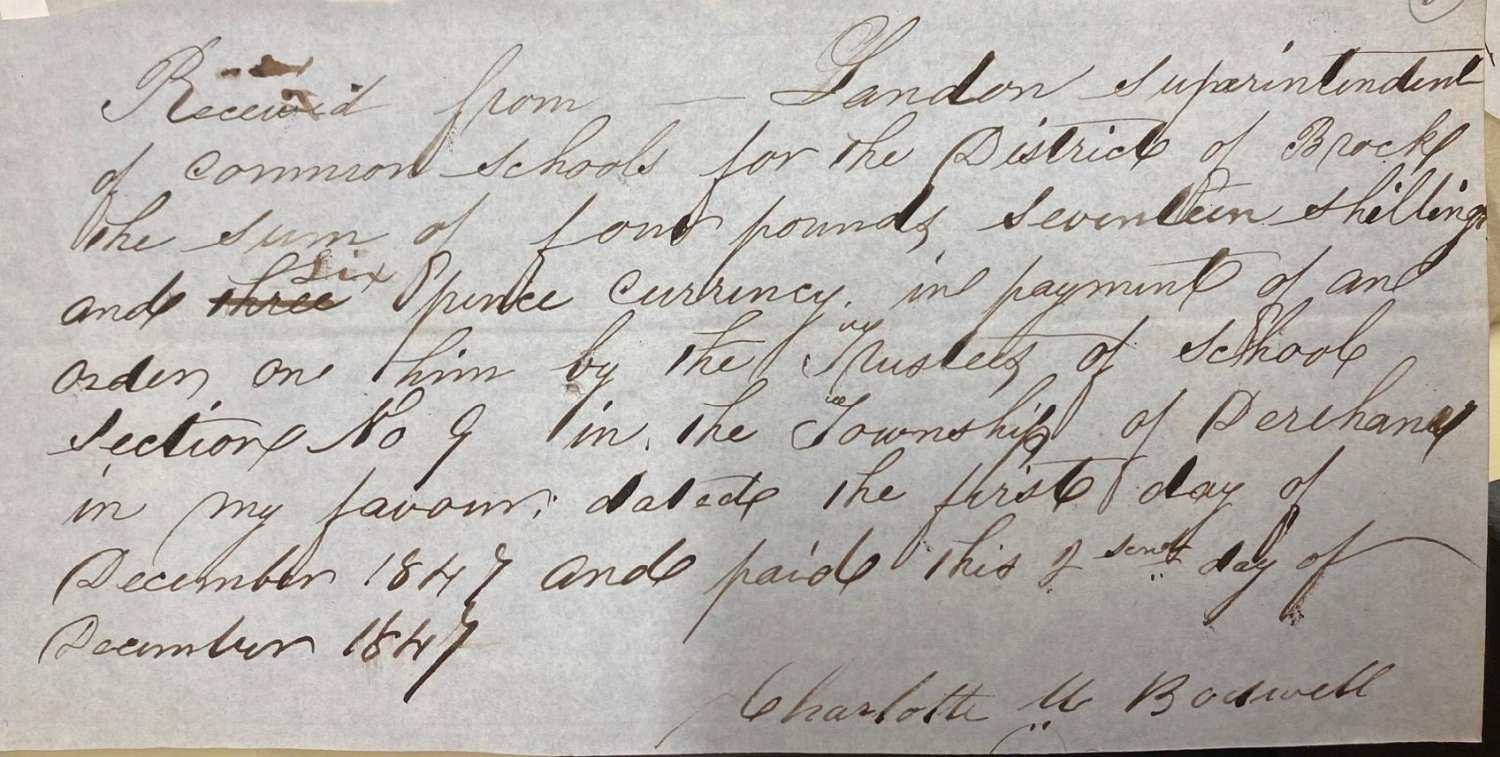 Received from — Landon Superintendent
of common schools for the District of Brock
the sum of four pounds seventeen shillings
and three six pence currency. in payment of an
order on him by the Trustees of School
section No 9 in the Township of Dereham
in my favour; dated the first day of
December 1847 and paid this day of
December 1847
Charlotte M Bodwell